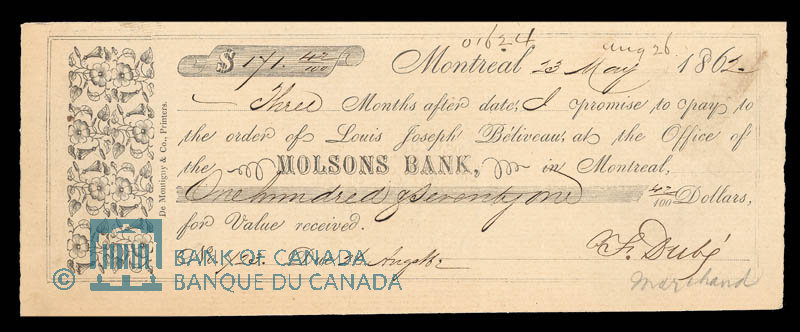 01624
aug 26
$ 171. 42/100 Montreal 23 May 1862
Three Months after date, I promise to pay to
the order of Louis Joseph Béliveau, at the Office of
the MOLSONS BANK, in Montreal,
One hundred & Seventy one 42/100 Dollars,
for Value received.
F. Dubé
Marchand
De Montigny & Co., Printers.
BANK OF CANADA
© BANQUE DU CANADA